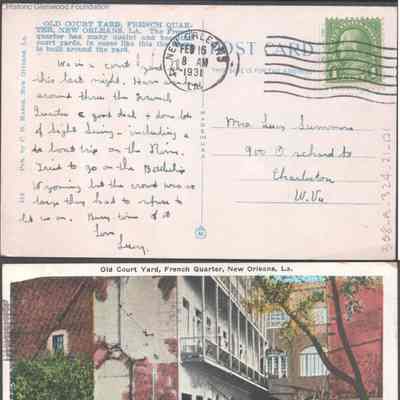 Historic Glenwood Foundation
OLD COURT YARD, FRENCH QUAR-
TER, NEW ORLEANS, LA. The French
quarter has many quaint and
court yards. In cases like this the
is built around the yard.
POST CARD
NEW ORLEANS
FEB 16
8 AM
1931
LA.
We in a court yard like
this last night. Have
around thru the French
Quarter a good deal & done lots
of sight seeing - including a
boat trip on the River.
Tried to go on the Battleship
Wyoming but the crowd was so
large they had to refuse to
let us on. Busy time of it
Love
Lucy.
Mrs Lucy Summers
900 Orchard St
Charleston
W. Va
Pub. by New Orleans, La.
Old Court Yard, French Quarter, New Orleans, La.